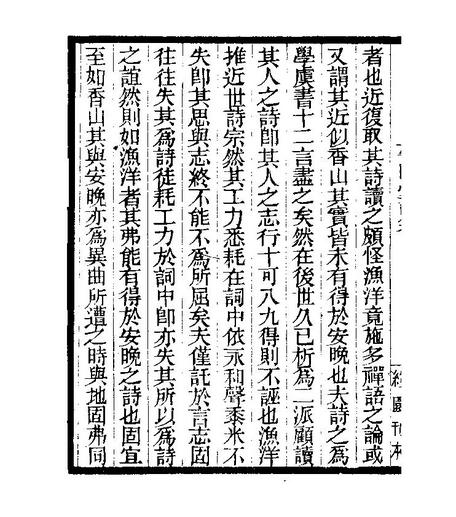 者也近復取其詩讀之頗怪漁洋竟施多禪語之論或
又謂其近似香山其實皆未有得於安晚也夫詩之為
學虞書十二言盡之矣然在後世久已析為二派顧讀
其人之詩卽其人之志行十可八九得則不誣也漁洋
推近世詩宗然其工力悉耗在詞中依永和聲黍米不
失卽其思與志終不能不為所屈矣夫僅託於言志固
往往失其為詩徒耗工力於詞中卽亦失其所以為詩
之誼然則如漁洋者其弗能有得於安晚之詩也固宜
至如香山其與安晚亦為異曲所遭之時與地固弗同